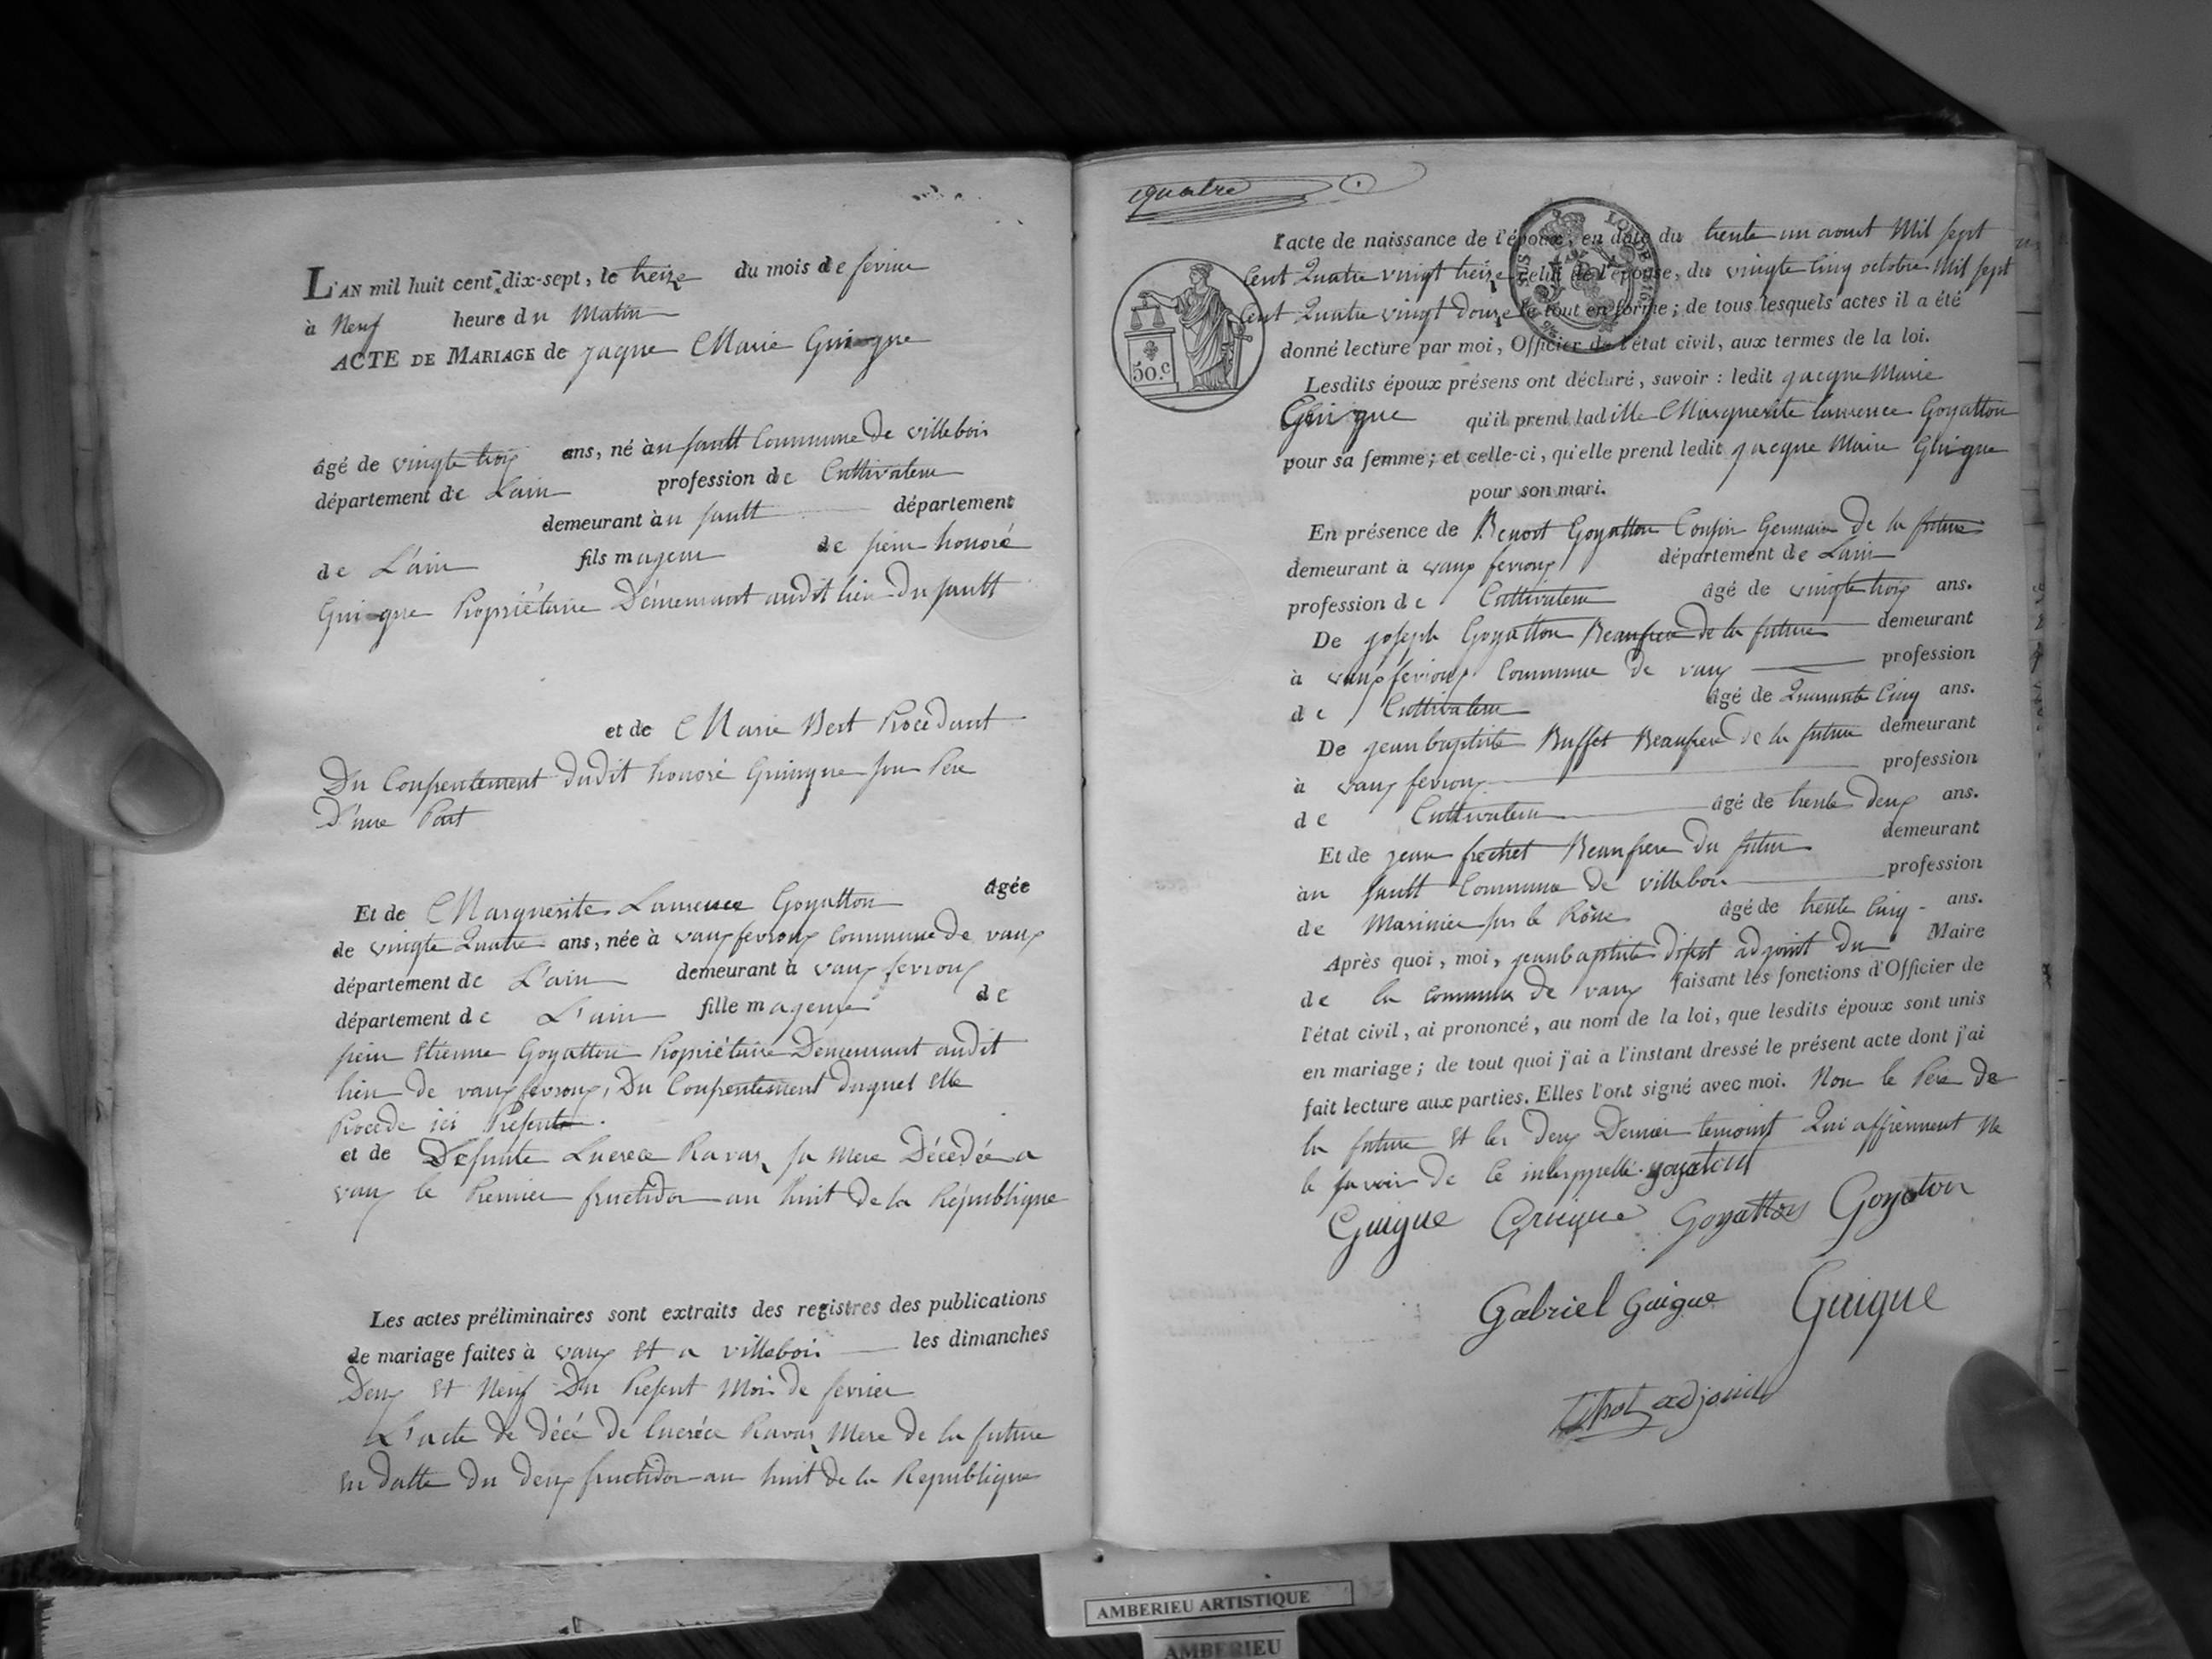 L'AN mil huit cent dix-sept, le treize du mois de fevrier
à Neuf heure du Matin
ACTE DE MARIAGE de jaque Marie Guigue
âgé de vingte trois ans, né au sault Commune de villebois
département de Lain profession de Cultivateur
demeurant au sault département
de L'ain fils mageur de sieur honoré
Guigue Propriétaire Démeurant audit lieu Du sault
et de Marie Bert Procedant
Du Consentement dudit honoré Guigue son Pere
D'une Part
Et de Marguerite Laurence Goyatton âgée
de vingte Quatre ans, née à vaux fevroux Commune de vaux
département de L'ain demeurant à vaux fevroux
département de L'ain fille mageure de
sieur Etienne Goyatton Propriétaire Demeurant audit
lieu de vaux fevroux, Du Consentement Duquel Elle
Procede ici Present.
et de Defunte Lucrece Ravas sa Mere Décédée a
vaux le Premier fructidor an huit De la République
Les actes préliminaires sont extraits des registres des publications
de mariage faites à vaux et a villebois les dimanches
Deux Et Neuf Du Present Mois de fevrier
L'acte de décé de lucréce Ravas Mere de la future
en datte du deux fructidor an huit de la Republique
quatre
l'acte de naissance de l'époux, en date du trente un aout Mil sept
Cent Quatre vingt treize celui de l'épouse, du vingte Cinq octobre Mil sept
Cent Quatre vingt Douze le tout en forme; de tous lesquels actes il a été
donné lecture par moi, Officier de l'état civil, aux termes de la loi.
50.c
Lesdits époux présens ont déclaré, savoir: ledit jacque Marie
Guigue qu'il prend ladille Marguerite Laurence Goyatton
pour sa femme; et celle-ci, qu'elle prend ledit jacque Marie Guigue
pour son mari.
En présence de Benoit Goyatton Cousin Germain De la future
demeurant à vaux fevroux département de Lain
profession de Cultivateur âgé de vingte trois ans.
De joseph Goyatton Beaufrere de la future demeurant
à vaux fevroux Commune de vaux profession
de Cultivateur âgé de Quarante Cinq ans.
De jeanbaptiste Buffet Beaufrere de la future demeurant
à vaux fevroux profession
de Cultivateur âgé de trente deux ans.
Et de jean frechet Beaufrere Du futur demeurant
au sault Commune de villebois profession
de Marinier sur le Rône âgé de trente Cinq ans.
Après quoi, moi, jeanbaptiste adjoint Du Maire
de la commune de vaux faisant les fonctions d'Officier de
l'état civil, ai prononcé, au nom de la loi, que lesdits époux sont unis
en mariage; de tout quoi j'ai a l'instant dressé le présent acte dont j'ai
fait lecture aux parties. Elles l'ont signé avec moi. Non le Pere De
la future Et les deux Dernier temoint Qui affirment Ne
le savoir De Ce interppellé. goyaton
Guigue Guigue Goyatton Goyaton
Gabriel Guigue Guigue
adjoint
AMBERIEU ARTISTIQUE
AMBERIEU